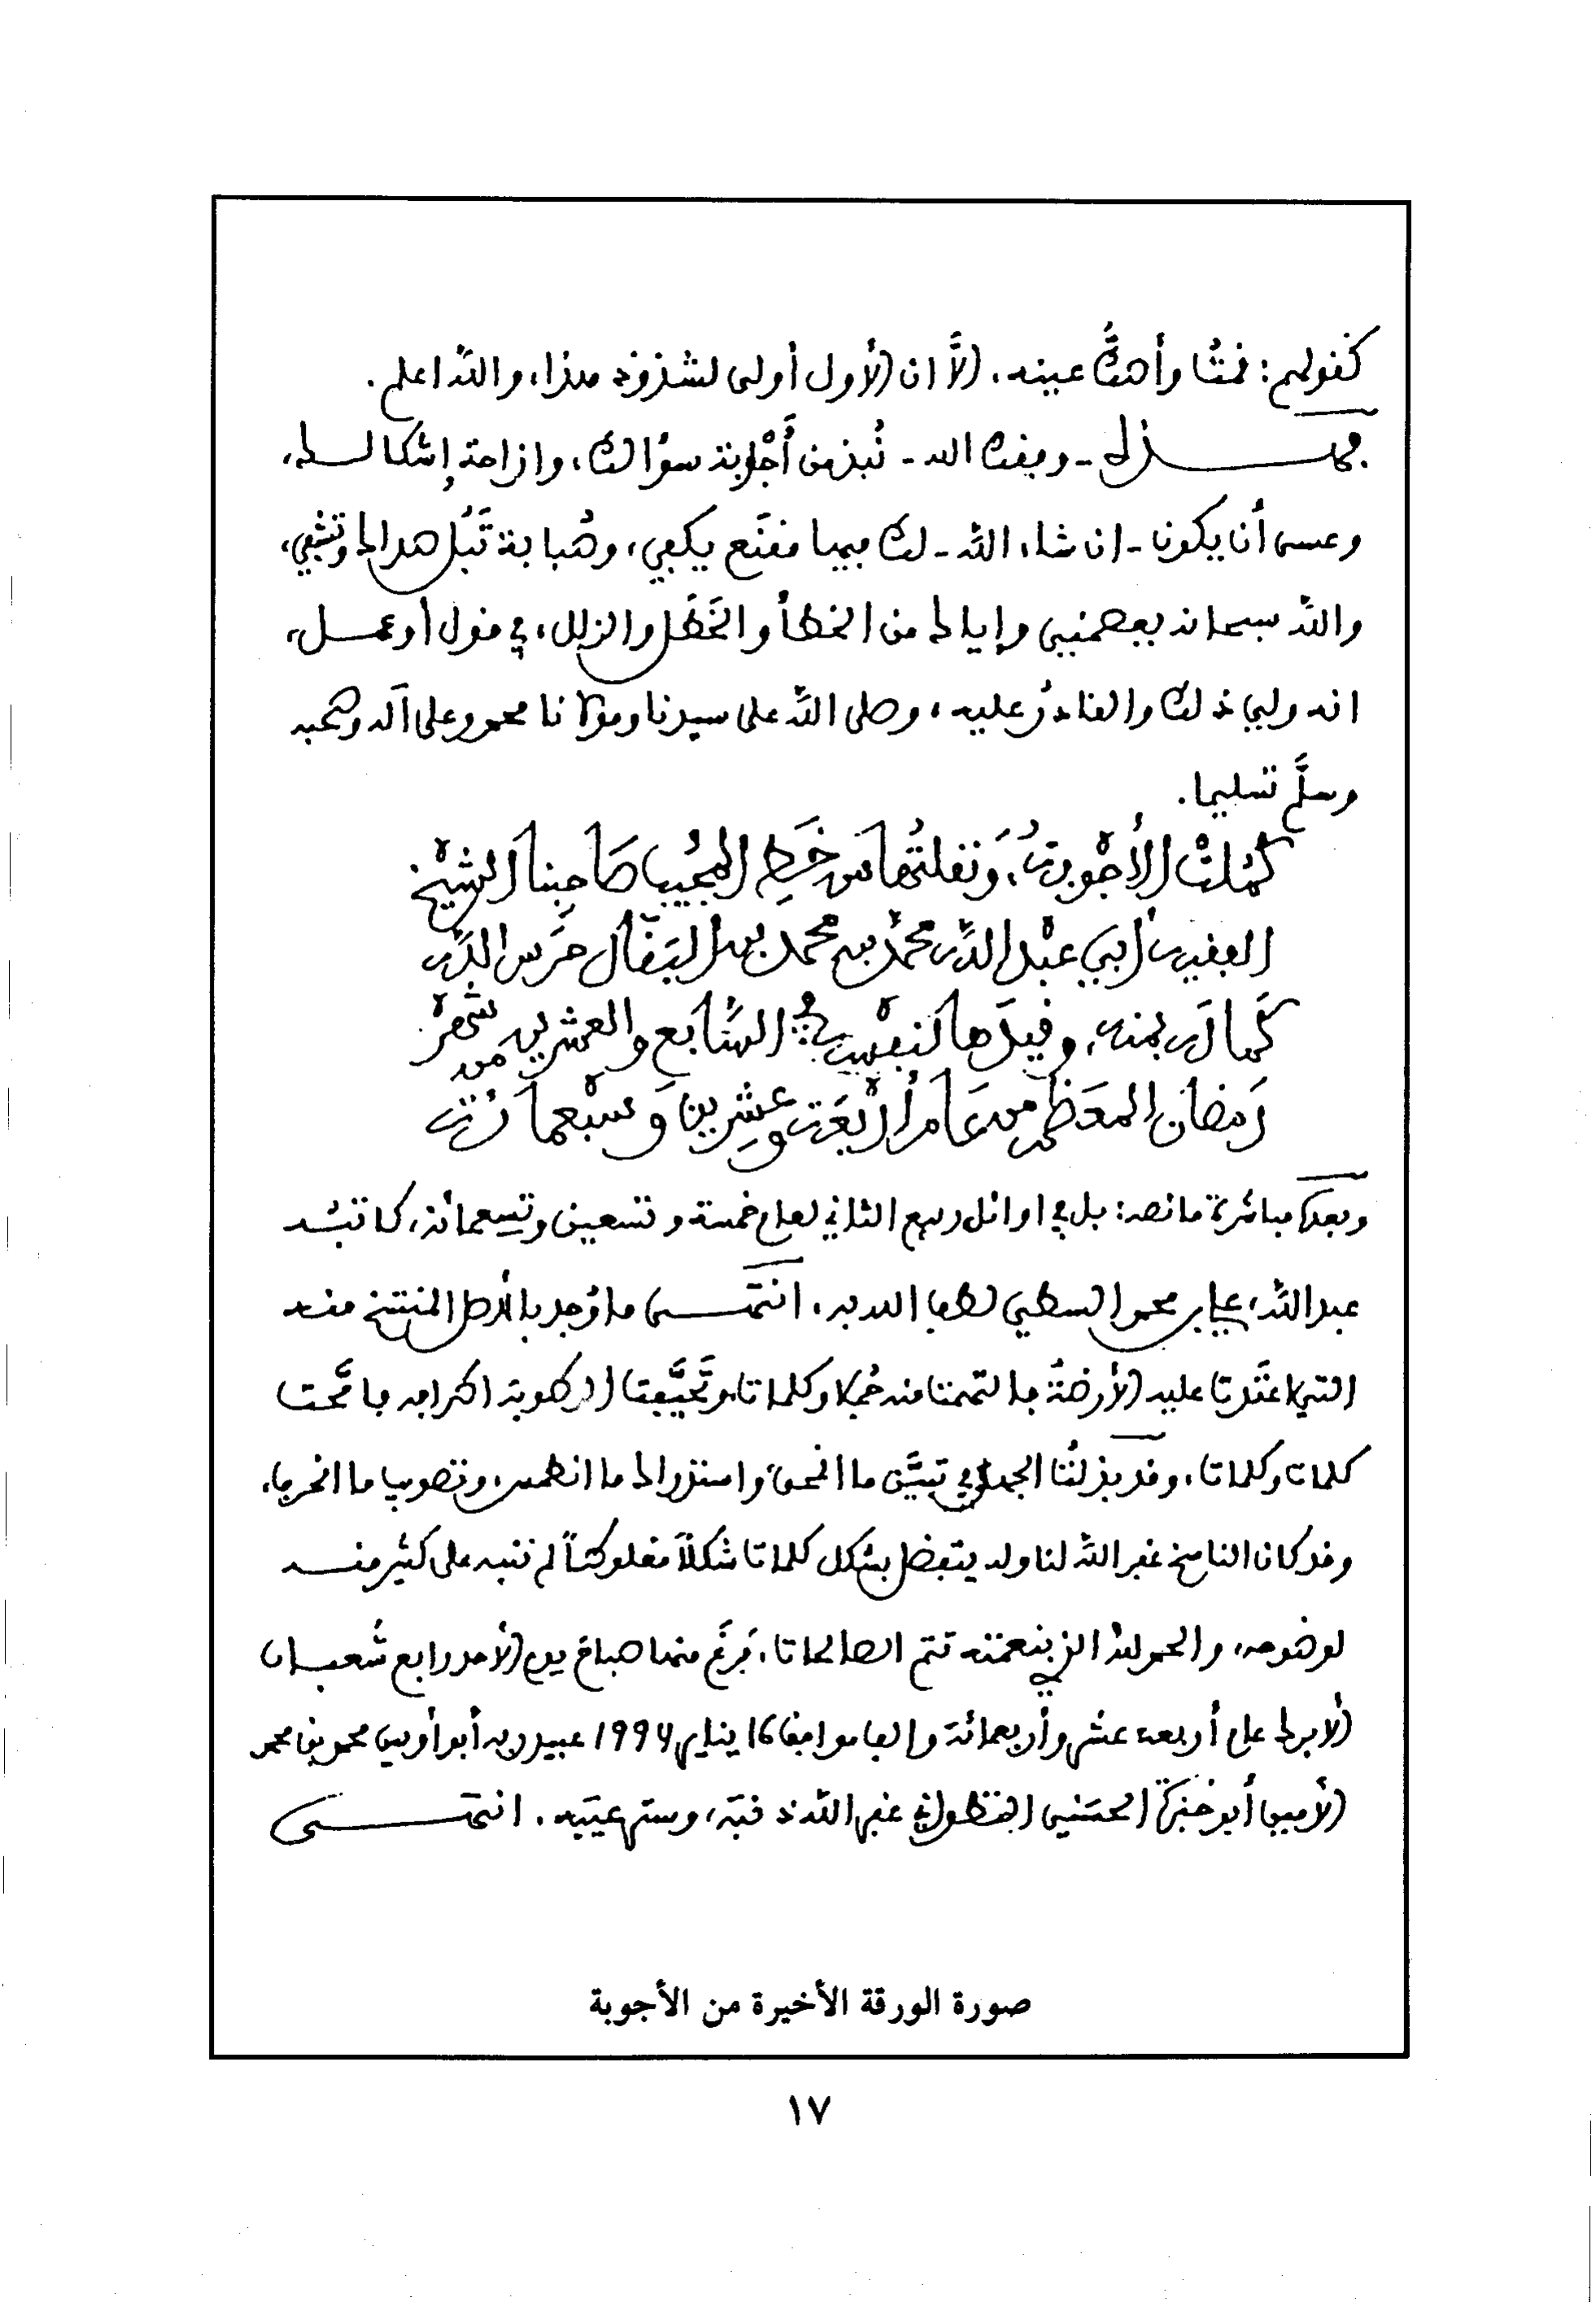 كقولهم: قمتُ وأصكُّ عينه، إلاَّ ان الأول أولى لشذوذ هذا، والله اعلم.
فهـــذه - وفقك الله - نُبذ من أَجْوبة سؤالك، وازاحة إشكالـــك،
وعسى أن يكون - ان شاء الله - لك فيها مقنَع يكفي، وصُبابة تَبُل صداك وتشفي،
والله سبحانه يعصمني وإياك من الخطأ والخَطَل والزلل، في قول أو عمـــل،
انه ولي ذلك والقادرُ عليه، وصلى الله على سيدنا ومولانا محمد وعلى آله وصحبه
وسلَّم تسليما.
كمُلتْ الأجْوبة، وَنقلتُها من خَط المجُيب صَاحبنا الشيْخ
الفقيه أبي عبْد الله محمَّد بن محمد بن البَقَّال حَرَس الله
كَمالَه بمنه، وقيدَها لنفسه في السَّابع والعشرين من شهْر
رَمضان المعَظم من عَام أرْبَعَة وعِشرين وَسبْعمائة
وبعدها مباشرة ما نصه: بل في اوائل ربيع الثاني لعام خمسة وتسعين وتسعمائة، كاتبُـــه
عبد الله علي بن محمد السطي لطف الله به، انتهـــى ما وُجد بالأصل المنتسخ منـــه
التي اعتَدت عليه الأرضَةُ فالتهمت منه جُملا وكلمات، وتَحيَّفت الرطوبة اطرافه فامَّحت
كلمات وكلمات، وقد بذلتُ الجهد في تبيَّن ما انمحى، واستدراك ما انطمس، وتصويب ما انحرف،
وقد كان الناسخ غفر الله لنا وله يتفضل بشكل كلمات شكلاً مغلوطاً لم ننبه على كثير منـــه
لوضوحه، والحمد لله الذي بنعمته تتم الصالحات، فرغَ منها صباحَ يوم الأحد رابع شَعبـــان
الأبرك عام أربعة عشر وأربعمائة وألف موافق 16 يناير 1994 عبيد ربه أبو أويس محمد بن محمد
الأمين أبو خبزة الحسَني التطواني غفر الله ذنبَه، وستر عيبَه. انتهـــى
صورة الورقة الأخيرة من الأجوبة
١٧